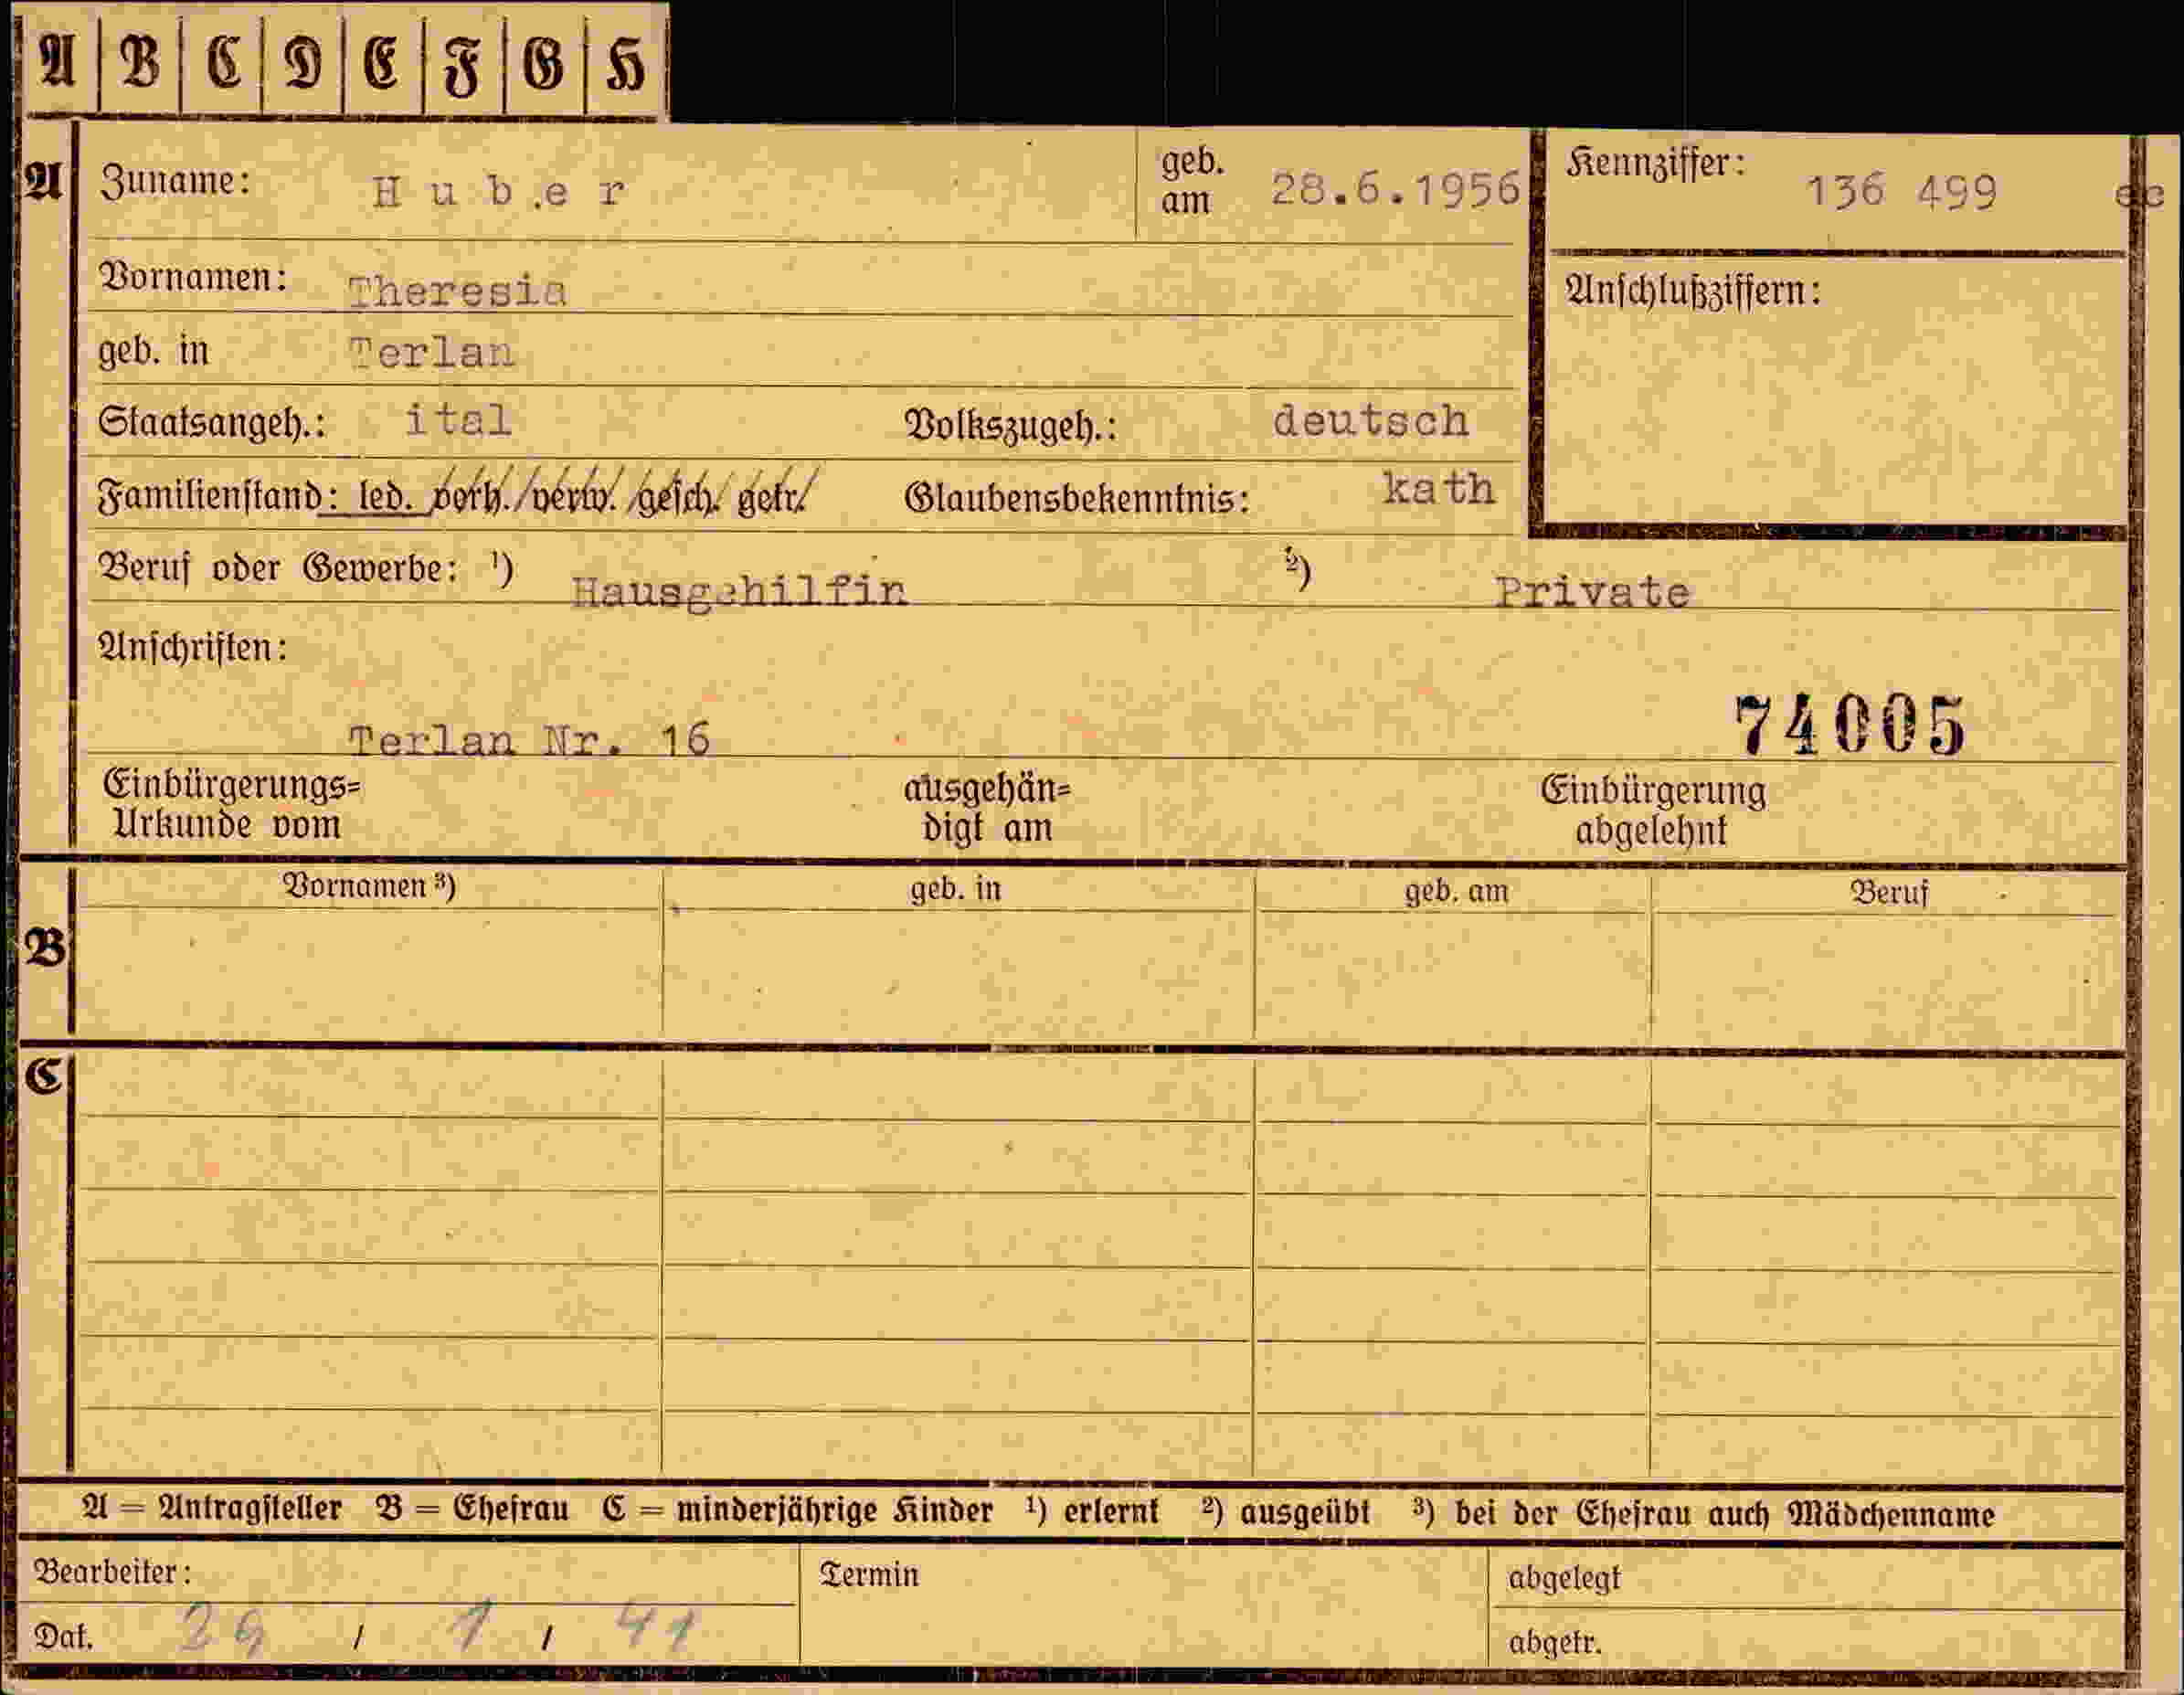 A B C D E F G H
A Zuname: H u b.e r geb. am 28.6.1956 Kennziffer: 136 499 ec
Vornamen: Theresia Anschlußziffern:
geb. in Terlan
Staatsangeh.: ital Volkszugeh.: deutsch
Familienstand: led. verh./verw./gesch./getr. Glaubensbekenntnis: kath
Beruf oder Gewerbe: ¹) Hausgehilfin ²) Private
Anschriften:
Terlan Nr. 16 74005
Einbürgerungs= ausgehän= Einbürgerung
Urkunde vom digt am abgelehnt
B Vornamen ³) geb. in geb. am Beruf
C
A = Antragsteller B = Ehefrau C = minderjährige Kinder ¹) erlernt ²) ausgeübt ³) bei der Ehefrau auch Mädchenname
Bearbeiter: Termin abgelegt
Dat. 29 / 1 / 41 abgetr.